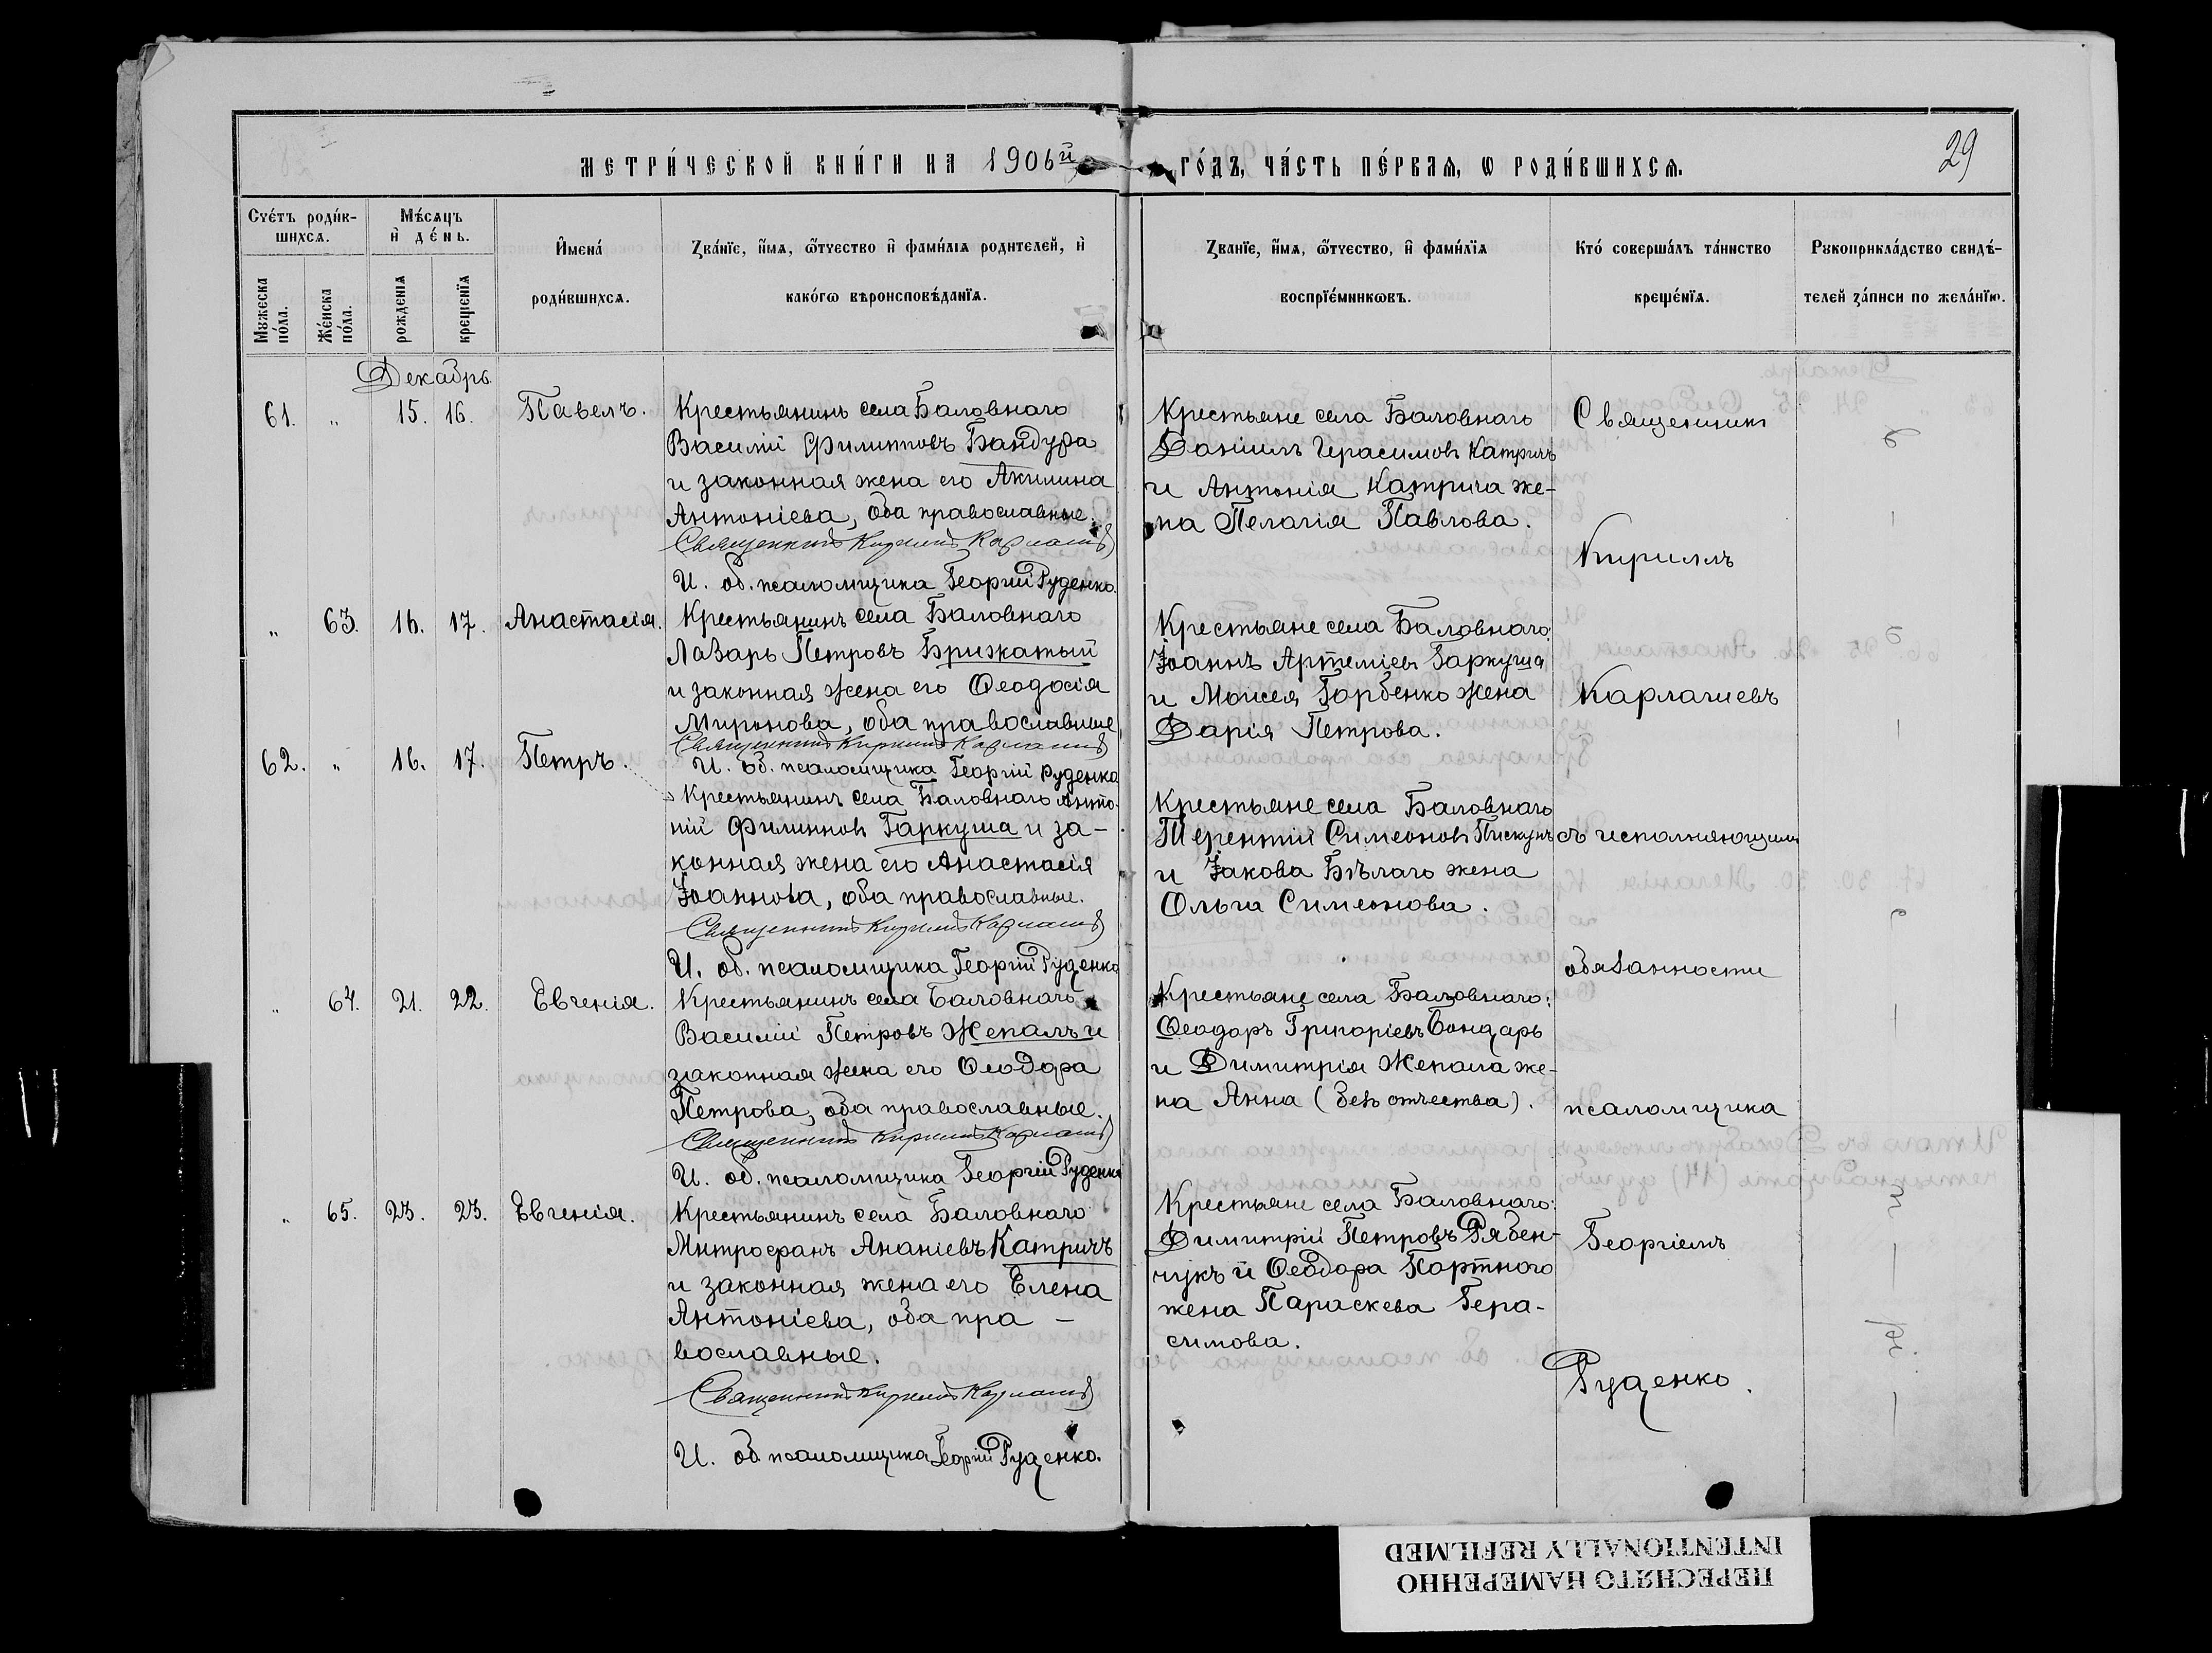 МЕТРИ́ЧЕСКОЙ КНИ́ГИ НА 1906й ГО́ДЪ, ЧА́СТЬ ПЕ́РВАЯ, Ѡ РОДИ́ВШИХСЯ.
29
Счетъ роди́в-
шихся.
Мꙋжеска по́ла.
Же́нска по́ла.
Мѣ́сяцъ
и҆ де́нь.
рожденія
крещенїя
И҆мена́
роди́вшихся.
Зва́нїе, и҆́мя, ѻ҆́тчество и҆ фами́лїя родителей, и҆
како́гѡ вѣроисповѣ́данїя.
Зва́нїе, и҆́мя, ѻ҆́тчество, и҆ фами́лїя
воспрїе́мникѡвъ.
Кто́ соверша́лъ та́инство
креще́нїя.
Рꙋкоприкла́дство свидѣ́-
телей за́писи по жела́нїю.
Декабрь
61. " 15. 16. Павелъ.
Крестьянинъ села Баловнаго
Василій Филипповъ Бандура
и законная жена его Акилина
Антоніева, оба православные.
Священникъ Кириллъ
И. об. псаломщика Георгій Руденко.
Крестьяне села Баловнаго
Даніилъ Герасимовъ Катричъ
и Антонія Катрича же-
на Пелагія Павлова.
" 63. 16. 17. Анастасія.
Крестьянинъ села Баловнаго
Лазарь Петровъ Брижатый
и законная жена его Ѳеодосія
Миронова, оба православные,
Священникъ Кириллъ
И. об. псаломщика Георгій Руденко
Крестьяне села Баловнаго:
Іоаннъ Артеміевъ Гаркуша
и Моисея Горбенко жена
Дарія Петрова.
62. " 16. 17. Петръ.
Крестьянинъ села Баловнаго Анто-
ній Филиппов Гаркуша и за-
конная жена его Анастасія
Іоаннова, оба православные.
Священникъ Кириллъ
И. об. псаломщика Георгій Руденко
Крестьяне села Баловнаго
Терентій Симеоновъ Пискунъ
и Іакова Бѣлаго жена
Ольга Симеонова.
" 64. 21. 22. Евгенія.
Крестьянинъ села Баловнаго
Василій Петровъ Жепалъ и
законная жена его Ѳеодора
Петрова, оба православные.
Священникъ Кириллъ
И. об. псаломщика Георгій Руденко
Крестьяне села Баловнаго:
Ѳеодоръ Григоріевъ Бондарь
и Димитрія Жепала же-
на Анна (безъ отчества).
" 65. 23. 23. Евгенія.
Крестьянинъ села Баловнаго
Митрофанъ Ананіевъ Катричъ
и законная жена его Елена
Антоніева, оба пра-
вославные.
Священникъ Кириллъ
И. об. псаломщика Георгій Руденко.
Крестьяне села Баловнаго:
Димитрій Петровъ Рябен-
чукъ и Ѳеодора Портного
жена Параскева Гера-
симова.
Священникъ
Кириллъ
Карлашевъ
съ исполняющимъ
обязанности
псаломщика
Георгіемъ
Руденко.
ПЕРЕСНЯТО НАМЕРЕННО
INTENTIONALLY REFILMED